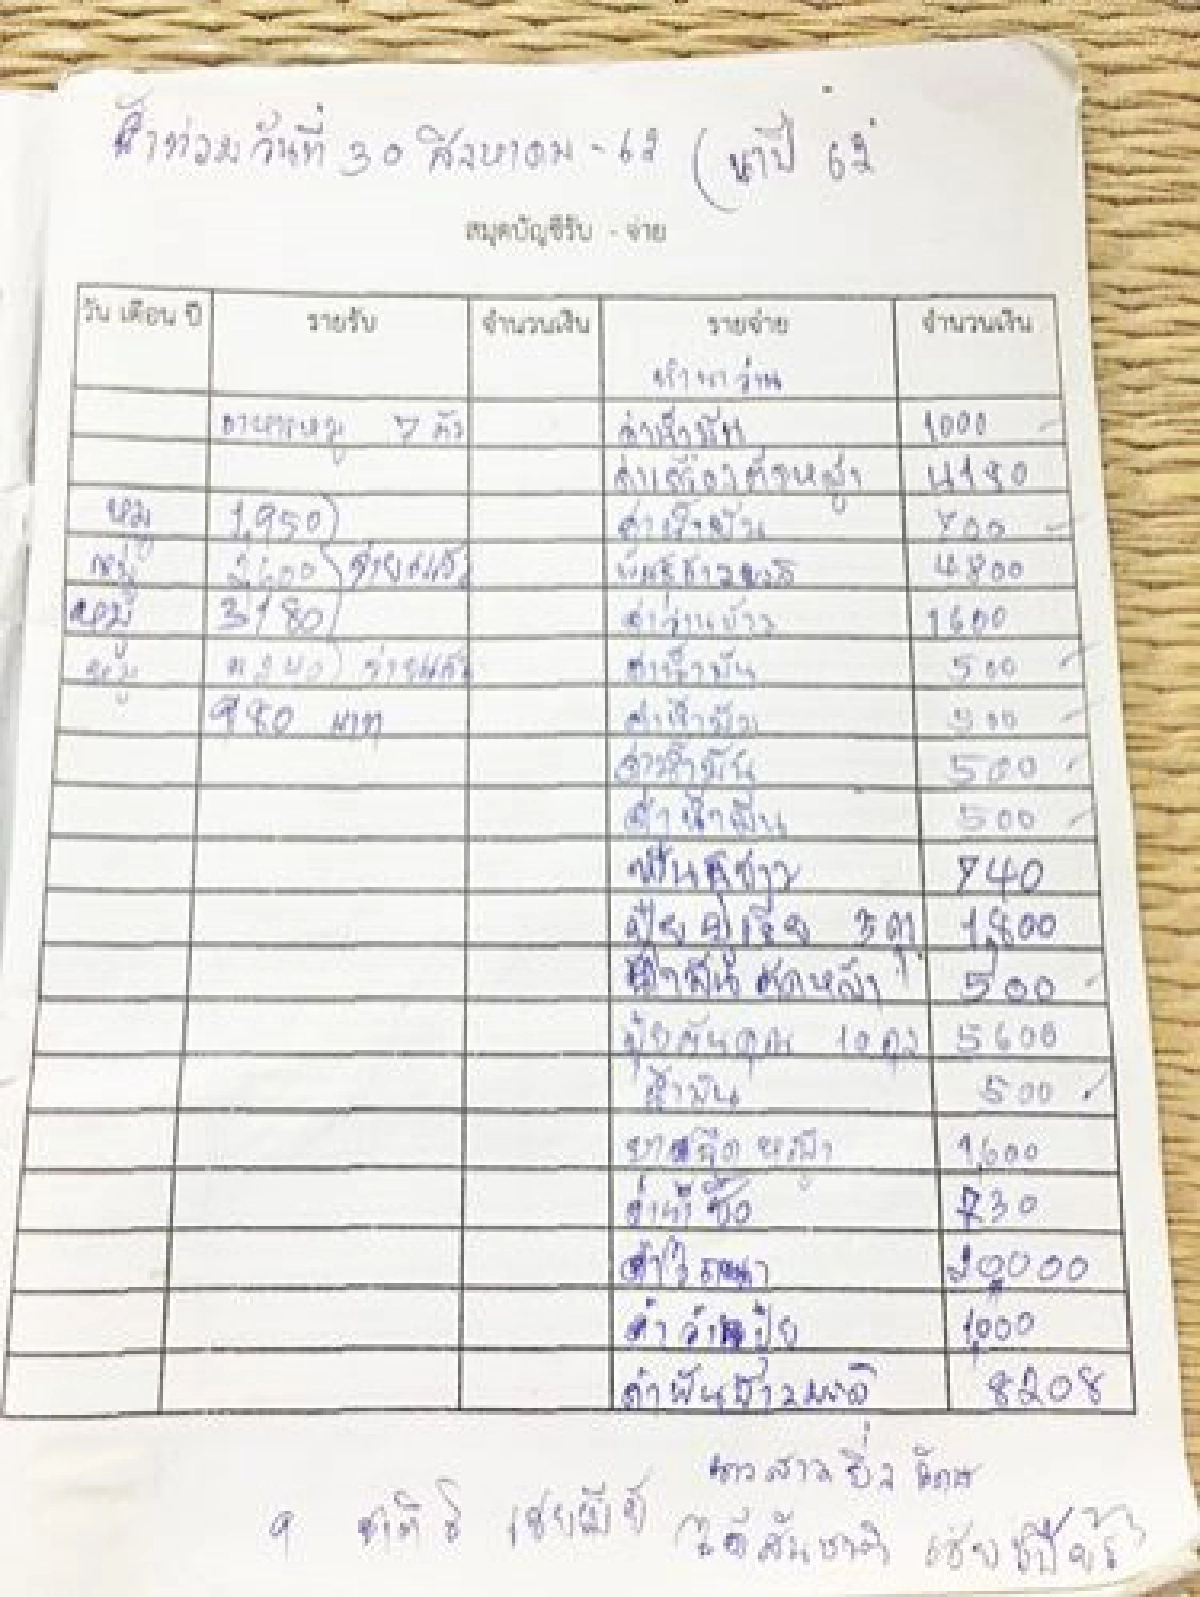 น้ำท่วมวันที่ 30 สิงหาคม - 62 (นาปี 62
สมุดบัญชีรับ - จ่าย
วัน เดือน ปี รายรับ จำนวนเงิน รายจ่าย จำนวนเงิน
ทำนาว่าน
อาหารหมู 7 ตัว ค่าน้ำมัน 1000
ค่าเครื่องตัดหญ้า 4180
หมู 1,950) ค่าน้ำมัน 700
หมู 2600 จ่ายแล้ว พันธุ์ข้าวมะลิ 4800
หมู 3180 ค่าว่านข้าว 1600
หมู จ่ายแล้ว ค่าน้ำมัน 500
980 บาท ค่าน้ำมัน 500
ค่าน้ำมัน 500
ค่าน้ำมัน 500
พันธุ์ข้าว 740
ปุ๋ยยูเรีย 3 1,800
น้ำมันตัดหญ้า 500
ปุ๋ย 10 5600
น้ำมัน 500
ยาฉีดหญ้า 1,600
730
ค่าไถนา 20000
ค่าว่านปุ๋ย 1,000
ค่าพันข้าวมะลิ 8208